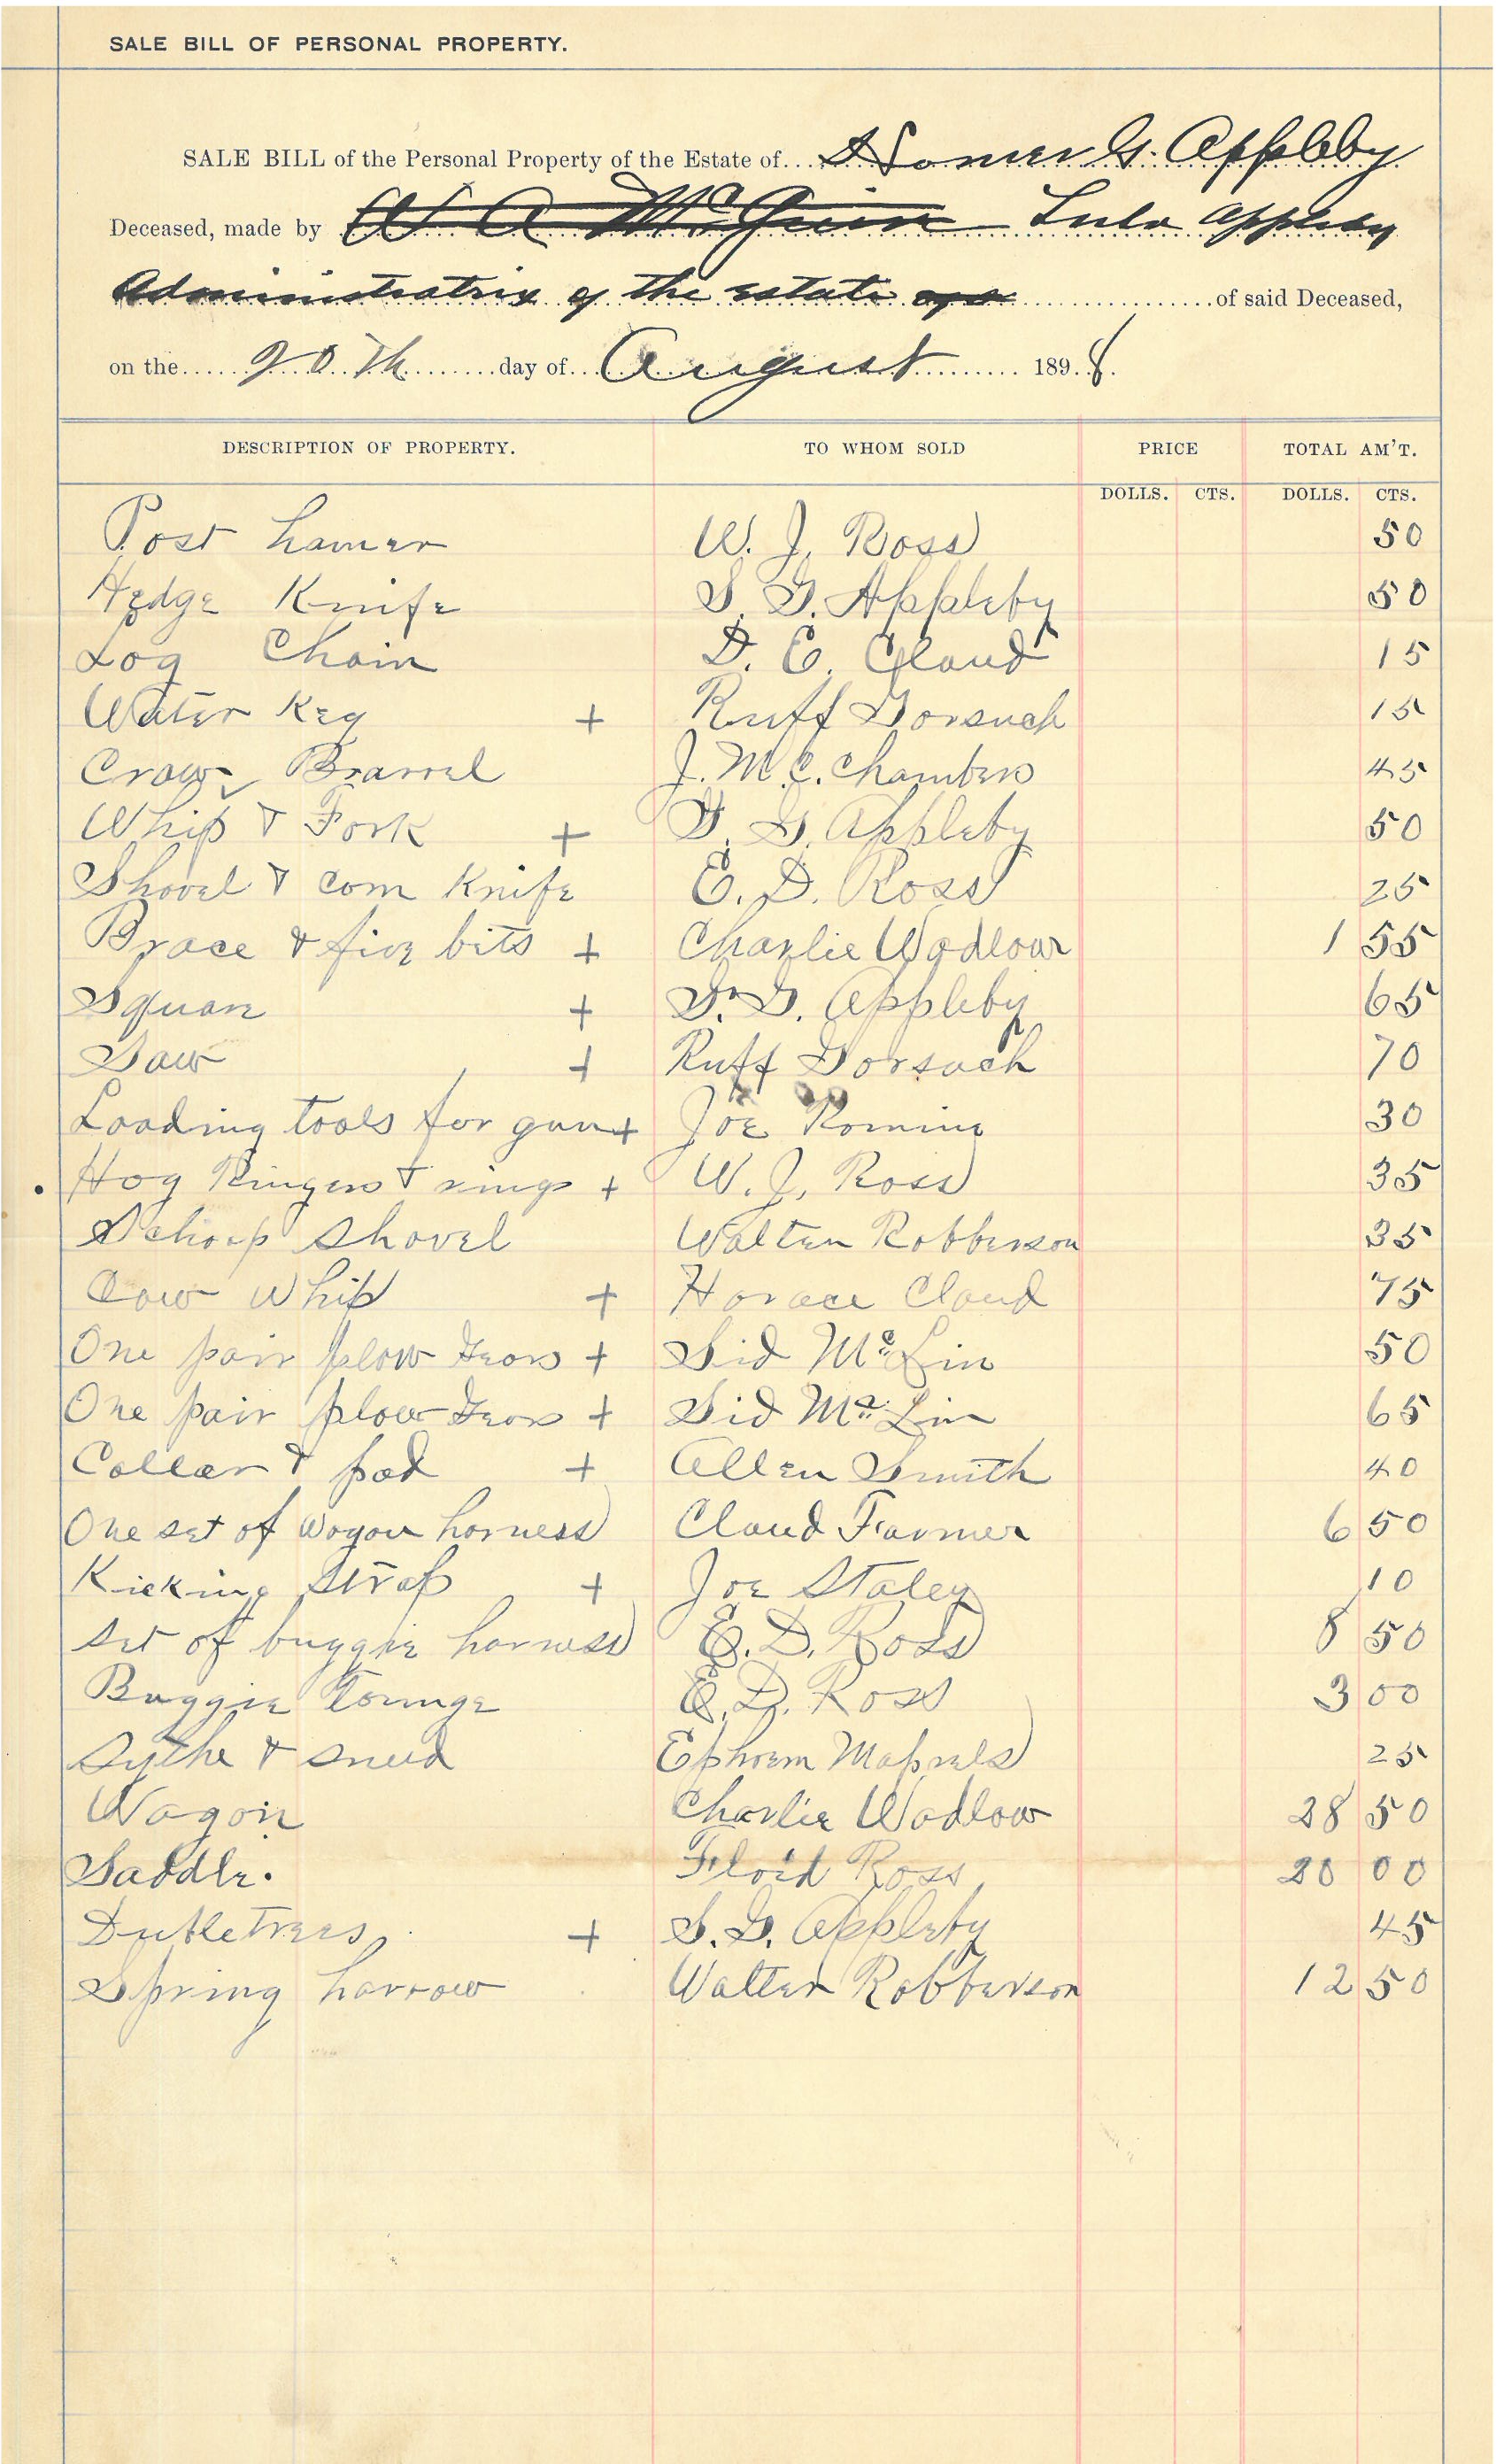 SALE BILL OF PERSONAL PROPERTY.
SALE BILL of the Personal Property of the Estate of Homer G. Appleby
Deceased, made by W A McGuin Lula Appleby
Administratrix of the estate of said Deceased,
on the 20th day of August 1898.
DESCRIPTION OF PROPERTY. TO WHOM SOLD PRICE TOTAL AM'T.
DOLLS. CTS. DOLLS. CTS.
Post hamer W. J. Ross 50
Hedge Knife S. G. Appleby 50
Log Chain D. E. Claud 15
Water Keg + Ruff Gorsuch 15
Barrel J. M. C. Chambers 45
Whip & Fork + S. G. Appleby 50
Shovel & corn Knife E. D. Ross 25
Brace & five bits + Charlie Wadlow 1 55
Square + S. G. Appleby 65
Saw + Ruff Gorsuch 70
Loading tools for gun + Joe Romine 30
Hog Ringers & rings + W. J. Ross 35
Schoop Shovel Walter Robberson 35
Cow Whip + Horace Claud 75
One pair plow + Sid McLin 50
One pair plow + Sid McLin 65
Collar & pad + Allen Smith 40
One set of wagon harness Claud Farmer 6 50
Kicking Strap + Joe Staley 10
set of buggie harness E. D. Ross 8 50
Buggie tounge E. D. Ross 3 00
Sythe & snead Ephrem 25
Wagon Charlie Wadlow 28 50
Saddle. Floid Ross 20 00
Dubletrees + S. G. Appleby 45
Spring harrow Walter Robberson 12 50